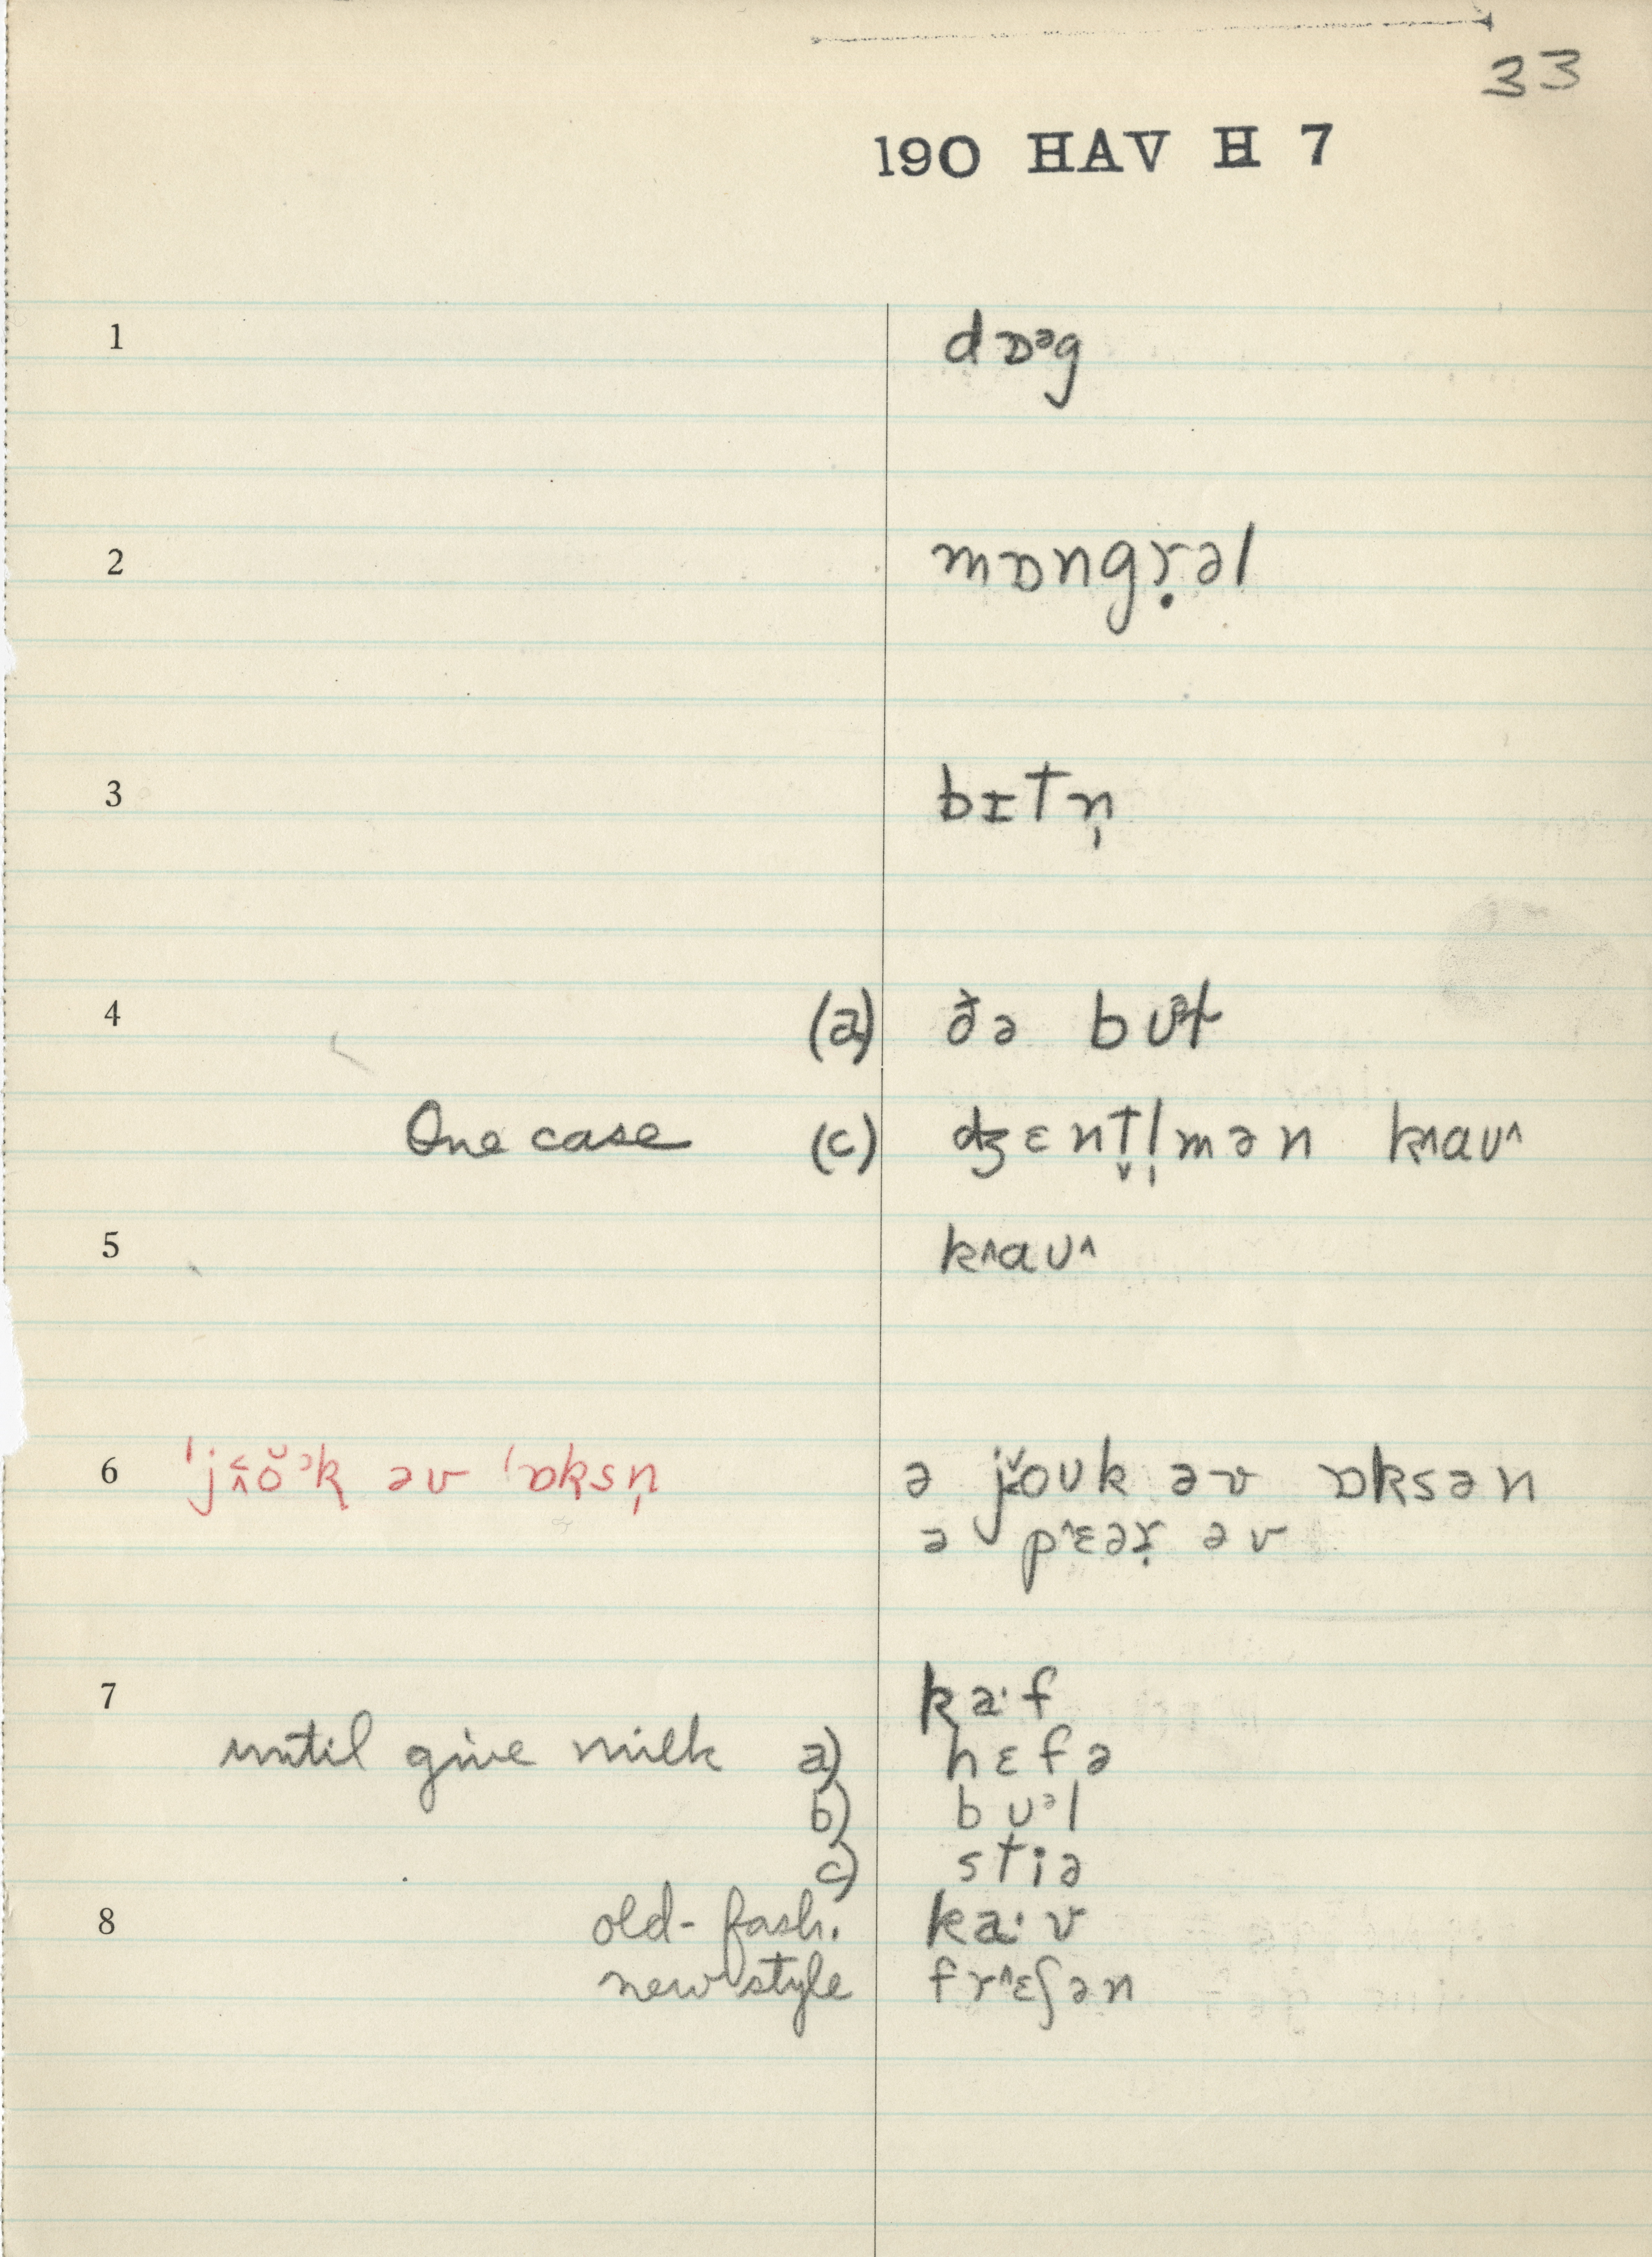 33
190 HAV H 7
1 dɒᵊg
2 mɒngɾ̣əl
3 bɪtn̩
4 (a) ðə bʊᵊɫ
One case (c) ʤɛnt̬l̩mən k˄aʊ˄
5 k˄aʊ˄
6 'jö̆ᵊk əv 'ɒksn̩ ə joʊk əv ɒksən
ə p˂ɛəɾ̣ əv
7 ka·f
until give milk a) hɛfə
b) bʊᵊl
c) stiə
8 old-fash. ka·v
new style fr˄ɛʃən